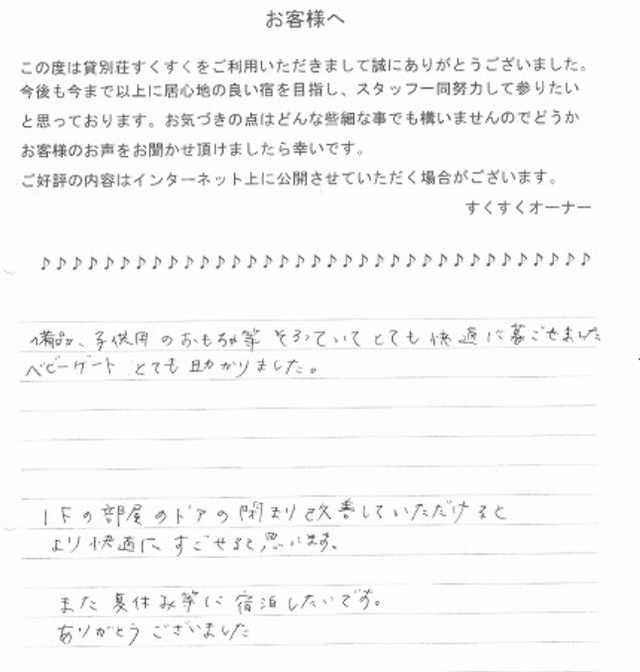 お客様へ
この度は貸別荘すくすくをご利用いただきまして誠にありがとうございました。
今後も今まで以上に居心地の良い宿を目指し、スタッフ一同努力して参りたい
と思っております。お気づきの点はどんな些細な事でも構いませんのでどうか
お客様のお声をお聞かせ頂けましたら幸いです。
ご好評の内容はインターネット上に公開させていただく場合がございます。
すくすくオーナー
♪♪♪♪♪♪♪♪♪♪♪♪♪♪♪♪♪♪♪♪♪♪♪♪♪♪♪♪♪♪♪♪♪♪♪
備品、子供用のおもちゃ等そろっていてとても快適に暮ごせました
ベビーゲートとても助かりました。
1Fの部屋のドアの閉まり改善していただけると
より快適にすごせると思います。
また夏休み等に宿泊したいです。
ありがとうございました